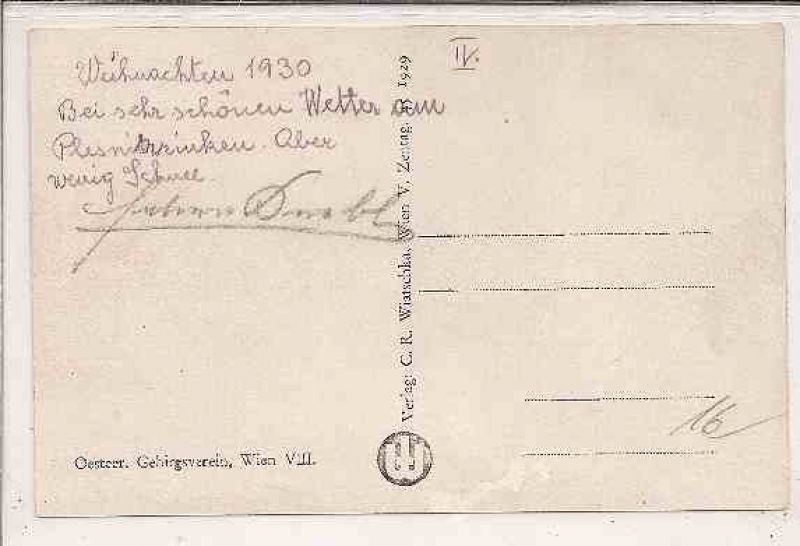 Weihnachten 1930
Bei sehr schönen Wetter am
Aber
wenig Schnee.
IV.
Verlag: C. R. Wiatschka, Wien V, Zentag. 1929
16
Oesterr. Gebirgsverein, Wien VIII.